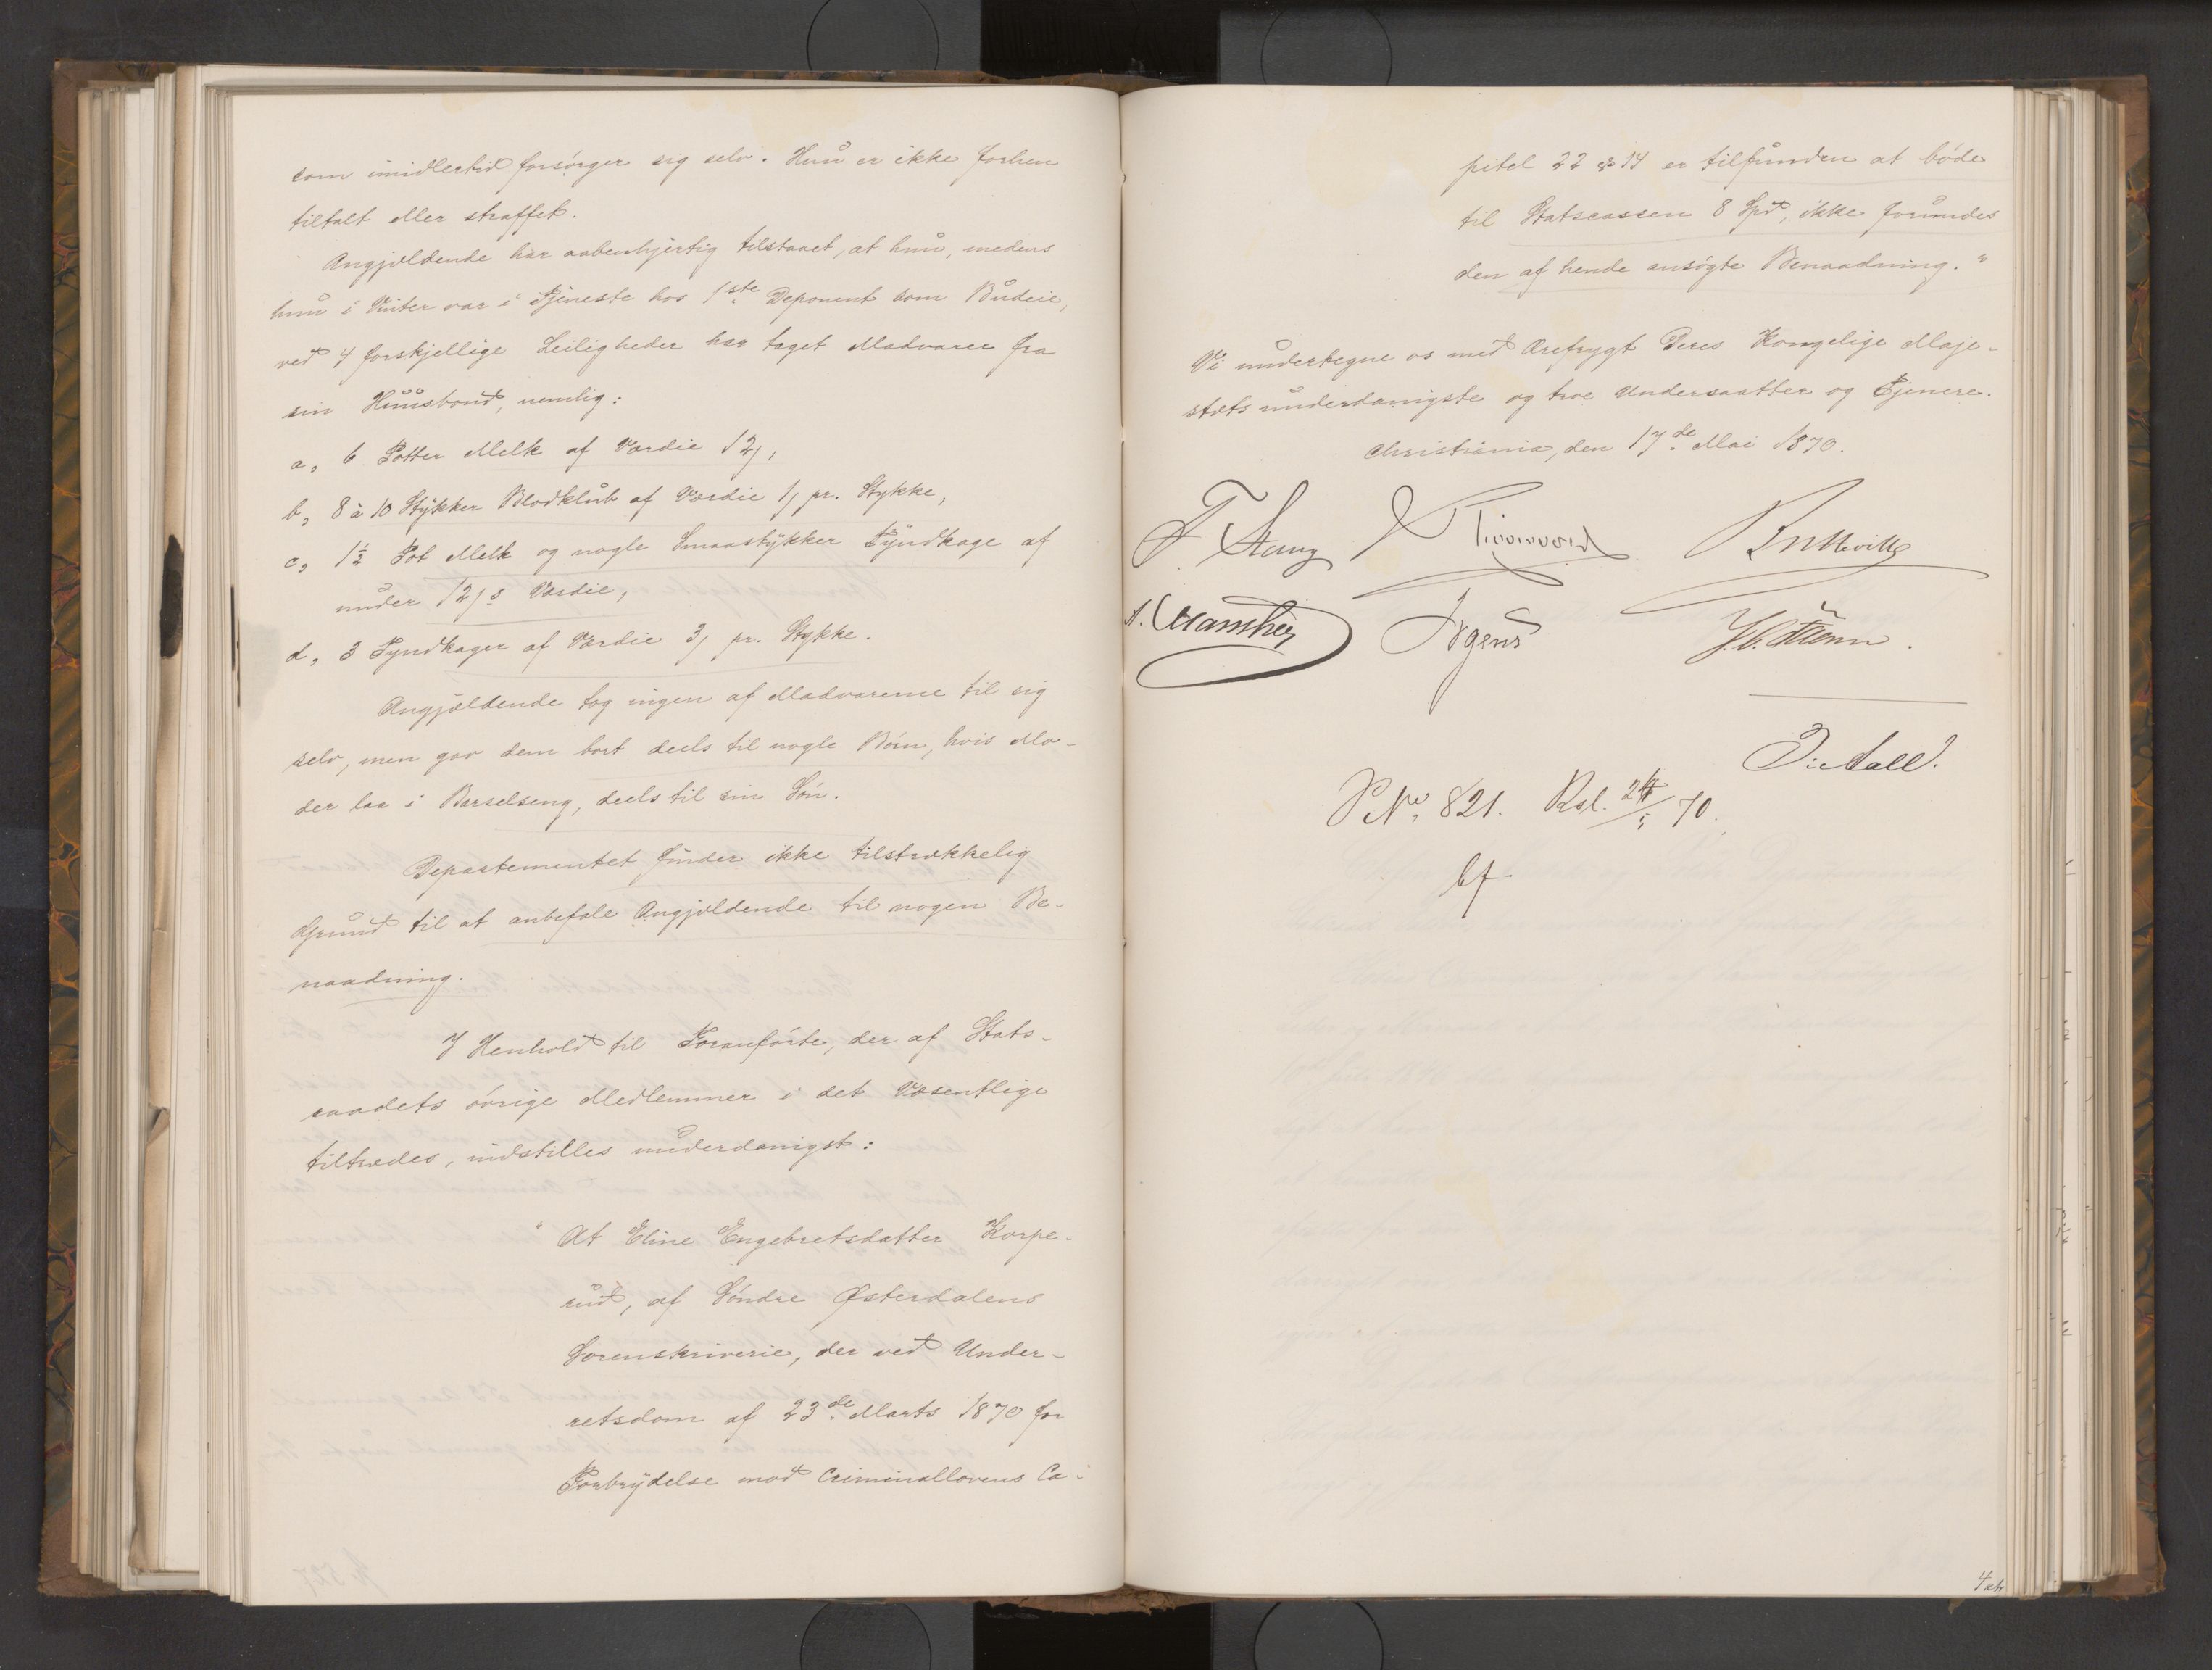 som imidlertid forsørger sig selv. Hun er ikke forhen
tiltalt eller straffet.
Angjældende har aabenhjertig tilstaaet, at hun, medens
hun i Vinter var i Tjeneste hos 1ste Deponent som Budeie,
ved 4 forskjellige Leiligheder har taget Madvarer fra
sin Huusbond, nemlig:
a, 6 Potter Melk af Værdie 12 β,
b, 8 à 10 Stykker Blodklub af Værdie 1 β pr. Stykke,
c, 1½ Pot Melk og nogle Smaastykker Tyndkage af
under 12 β s Værdie,
d, 3 Tyndkager af Værdie 3 β pr. Stykke.
Angjældende tog ingen af Madvarerne til sig
selv, men gav dem bort deels til nogle Børn, hvis Mo-
der laa i Barselseng, deels til sin Søn.
Departementet finder ikke tilstrækkelig
Grund til at anbefale Angjældende til nogen Be-
naadning.
I Henhold til Foranførte, der af Stats-
raadets øvrige Medlemmer i det Væsentlige
tiltrædes, indstilles underdanigst:
"At Eline Engebretsdatter Korpe-
rud, af Søndre Østerdalens
Sorenskriverie, der ved Under-
retsdom af 23de Marts 1870 for
Forbrydelse mod Criminallovens Ca-
pitel 22 § 14 er tilfunden at bøde
til Statscassen 8 Spd, ikke forundes
den af hende ansøgte Benaadning."
Vi undertegne os med Ærefrygt Deres Kongelige Maje-
stæts underdanigste og troe Undersaatter og Tjenere.
Christiania, den 17de Mai 1870.
F. Stang
Irgens
D. Aall.
P No 821. Rsl. 70.